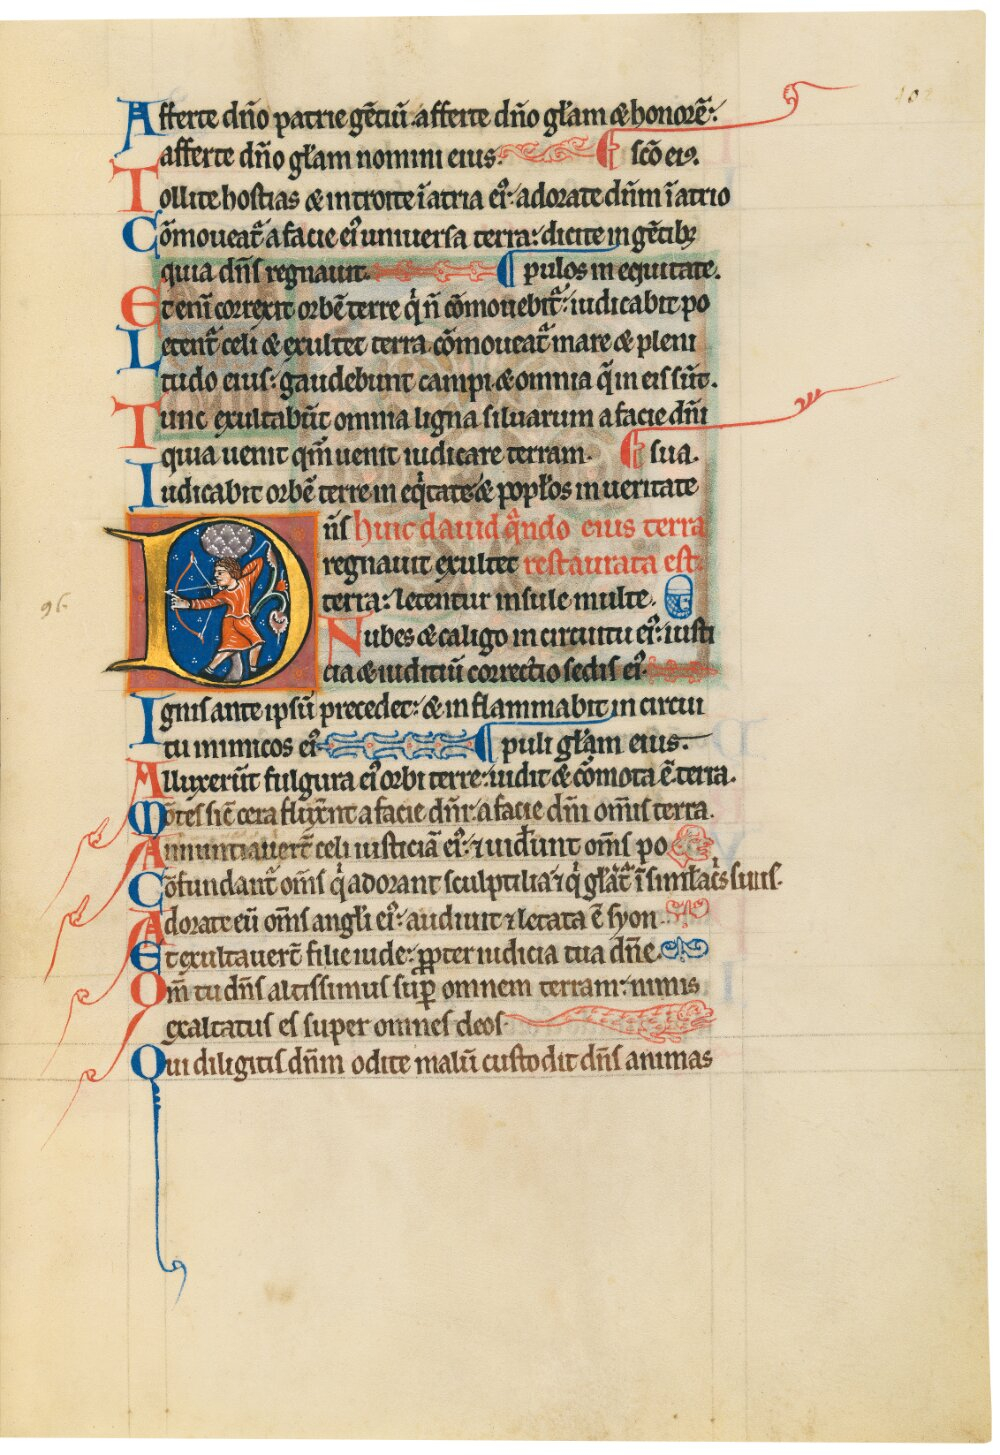 102
Afferte dño patrie gẽciũ. afferte dño głam & honorẽ:
afferte dño głam nomini eius: sc̃o eiꝰ.
Tollite hostias & introite ĩ atria eiꝰ: adorate dñm ĩ atrio
Cõmoueat᷑ a facie eiꝰ uniuersa terra: dicite in gẽtibꝫ
quia dñs regnauit. pulos in equitate.
Etenĩ correxit orbẽ terre qͥ ñ cõmouebit᷑: iudicabit po
Letent᷑ celi & exultet terra. cõmoueat᷑ mare & pleni
tudo eius: gaudebunt campi & omnia q̃ in eis sũt.
Tunc exultabũt omnia ligna siluarum a facie dñi
quia uenit qm̃ uenit iudicare terram. sua.
Iudicabit orbẽ terre in eqͥtate & popłos in ueritate
Dñs hunc dauid q̃ndo eius terra
regnauit exultet restaurata est:
terra: letentur insule multe.
96.
Nubes & caligo in circuitu eiꝰ: iusti
cia & iudiciũ correctio sedis eiꝰ
Ignis ante ipsũ precedet: & inflammabit in circui
tu inimicos eiꝰ puli głam eius.
Alluxerũt fulgura eiꝰ orbi terre: uidit & cõmota ẽ terra.
Mõtes sic̃ cera fluxer̃nt a facie dñi: a facie dñi om̃is terra.
Annuntiauer̃t celi iusticiã eiꝰ: ⁊ uider̃unt om̃s po
Cõfundant᷑ om̃s qͥ adorant sculptilia: ⁊ qͥ głant᷑ ĩ simłacͥs suis.
Adorate eũ om̃s angłi eiꝰ: audiuit ⁊ letata ẽ syon
Et exultauer̃t filie iude: ꝓpter iudicia tua dñe
Qm̃ tu dñs altissimus suꝑ omnem terram: nimis
exaltatus es super omnes deos.
Qui diligitis dñm odite malũ custodit dñs animas